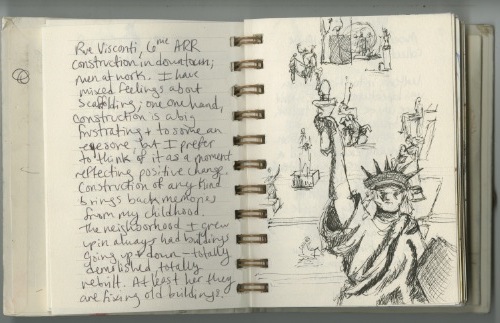 Rue Visconti, 6me ARR
construction in downtown;
men at work. I have
mixed feelings about
scaffolding; one one hand,
construction is a big
frustrating + to some an
eyesore, but I prefer
to think of it as a moment
reflecting positive change.
Construction of any kind
brings back memories
from my childhood.
The neighborhood I grew
up in always had buildings
going up + down - totally
demolished, totally
rebuilt. At least her they
are fixing old buildings.